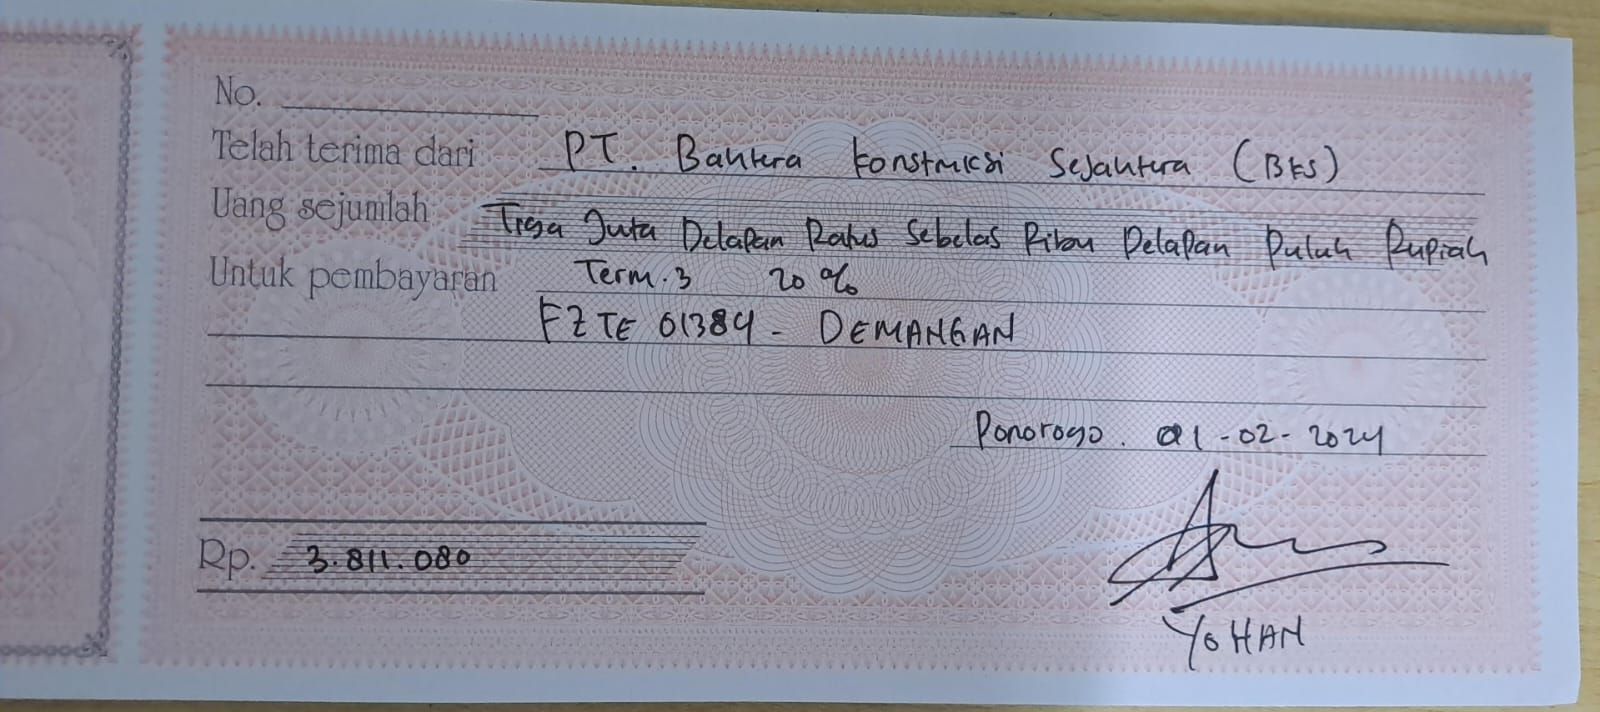 No.
Telah terima dari PT. Bahtera Konstruksi Sejahtera (BKS)
Uang sejumlah Tiga Juta Delapan Ratus Sebelas Ribu Delapan Puluh Rupiah
Untuk pembayaran Term.3 20%
FZTE 01384 - DEMANGAN
Ponorogo. 01-02-2024
Rp. 3.811.080
YOHAN